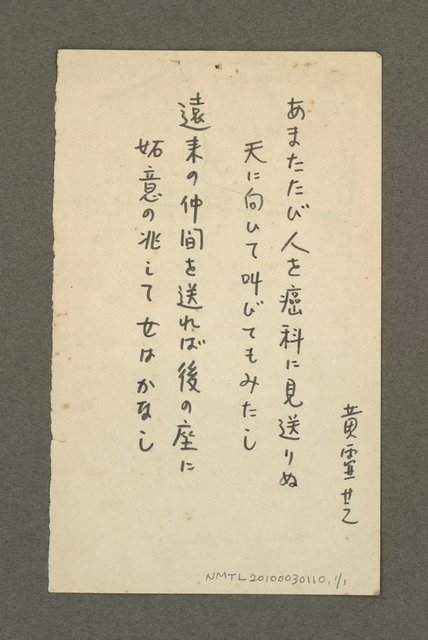 黄霊芝
あまたたび人を癌科に見送りぬ
天に向ひて叫びてもみたし
遠来の仲間を送れば後の座に
妬意の兆して女はかなし
NMTL20100030110, 1/1